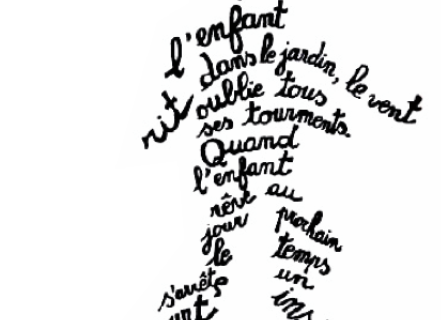 l'enfant
rit dans le jardin, le vent
oublie tous
ses tourments.
Quand
l'enfant
rêve au
jour prochain
le temps
s'arrête un